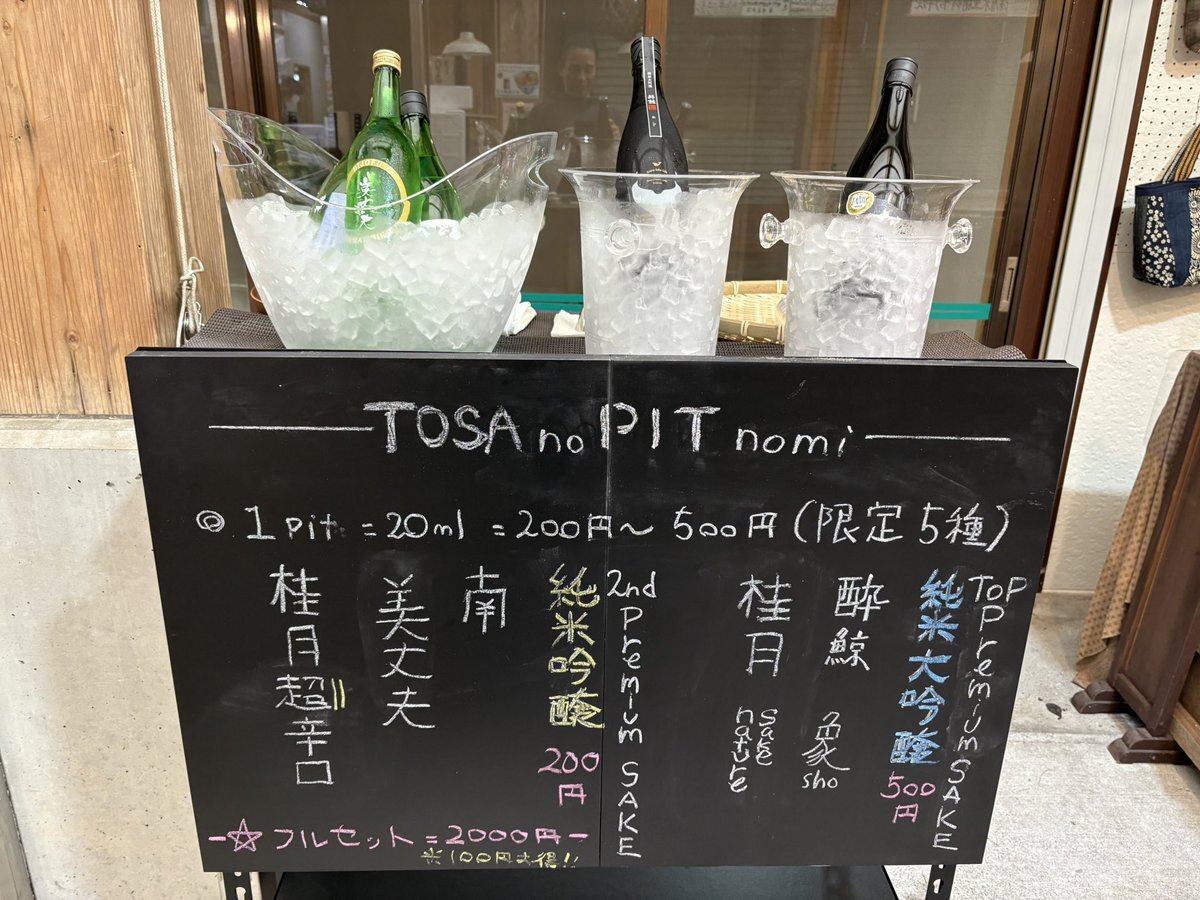 TOSA no PIT nomi
◎ 1 pit = 20ml = 200円～500円 (限定5種)
TOP Premium SAKE
純米大吟醸 500円
酔鯨 象 sho
桂月 sake nature
2nd Premium SAKE
純米吟醸 200円
南
美丈夫
桂月 超辛口
-☆フルセット=2000円-
※100円
美丈夫